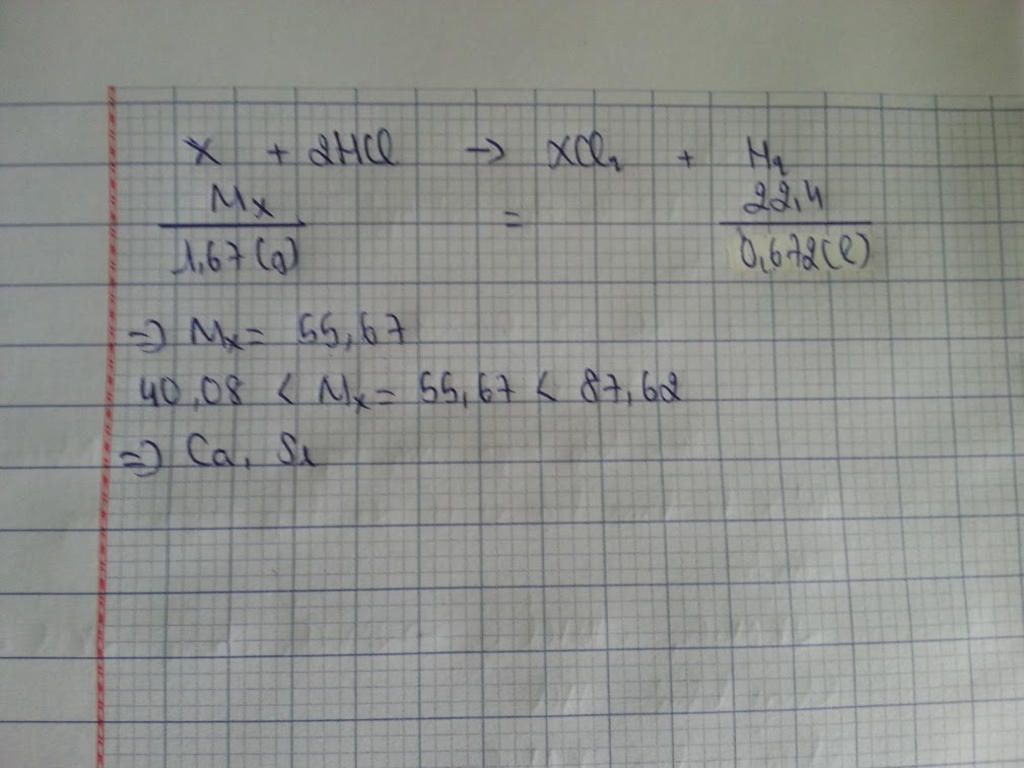 X + 2HCl → XCl₂ + H₂
Mx / 1,67(g) = 22,4 / 0,672(l)
=> Mx = 55,67
40,08 < Mx = 55,67 < 87,62
=> Ca, Sr